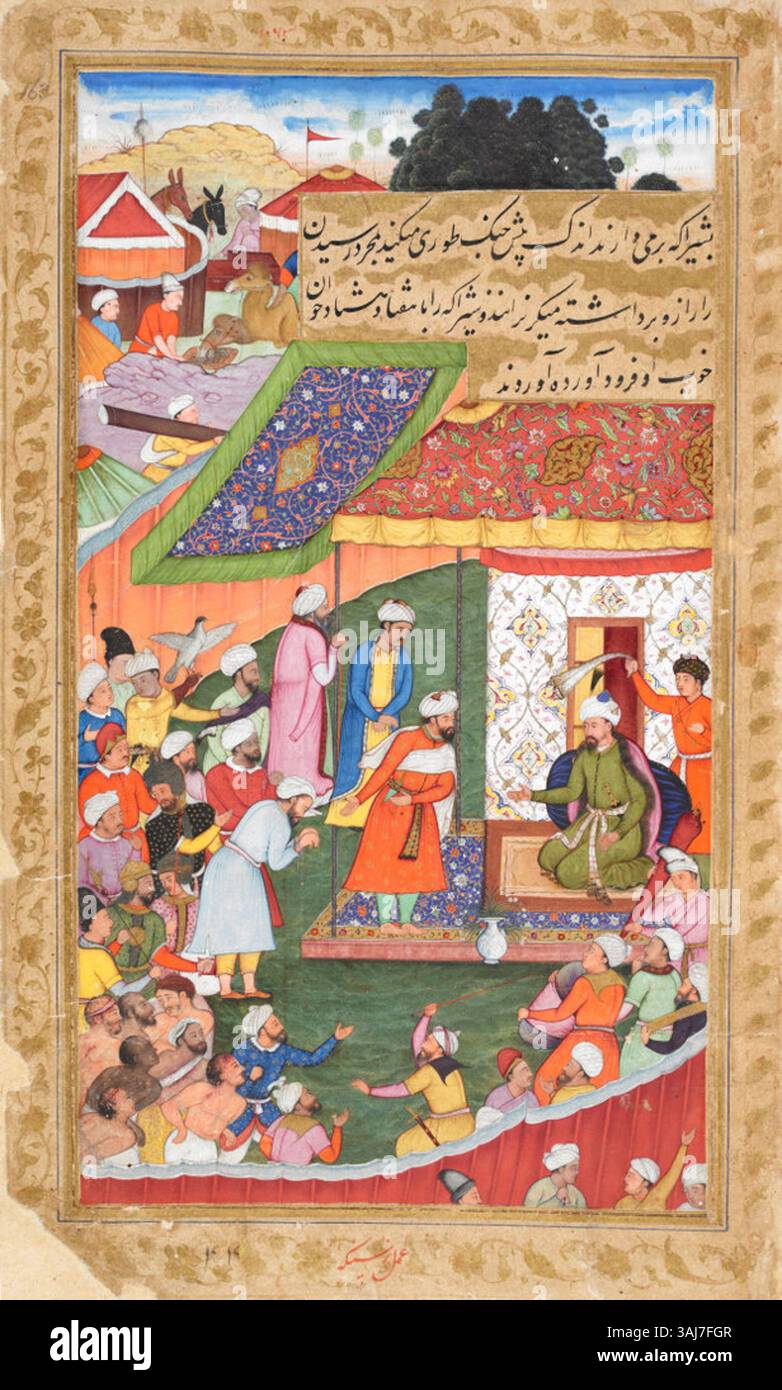 163
بشیراکه برمی‌دارند اندک پیش جنگ طوری میکنید بمجرد رسیدن
را از او برداشته میگریزانند و شیراکه را با هفتاد هشتاد جوان
خوب او فرود آورده آوروند
عمل
alamy
Image ID: 3AJ7FGR
www.alamy.com